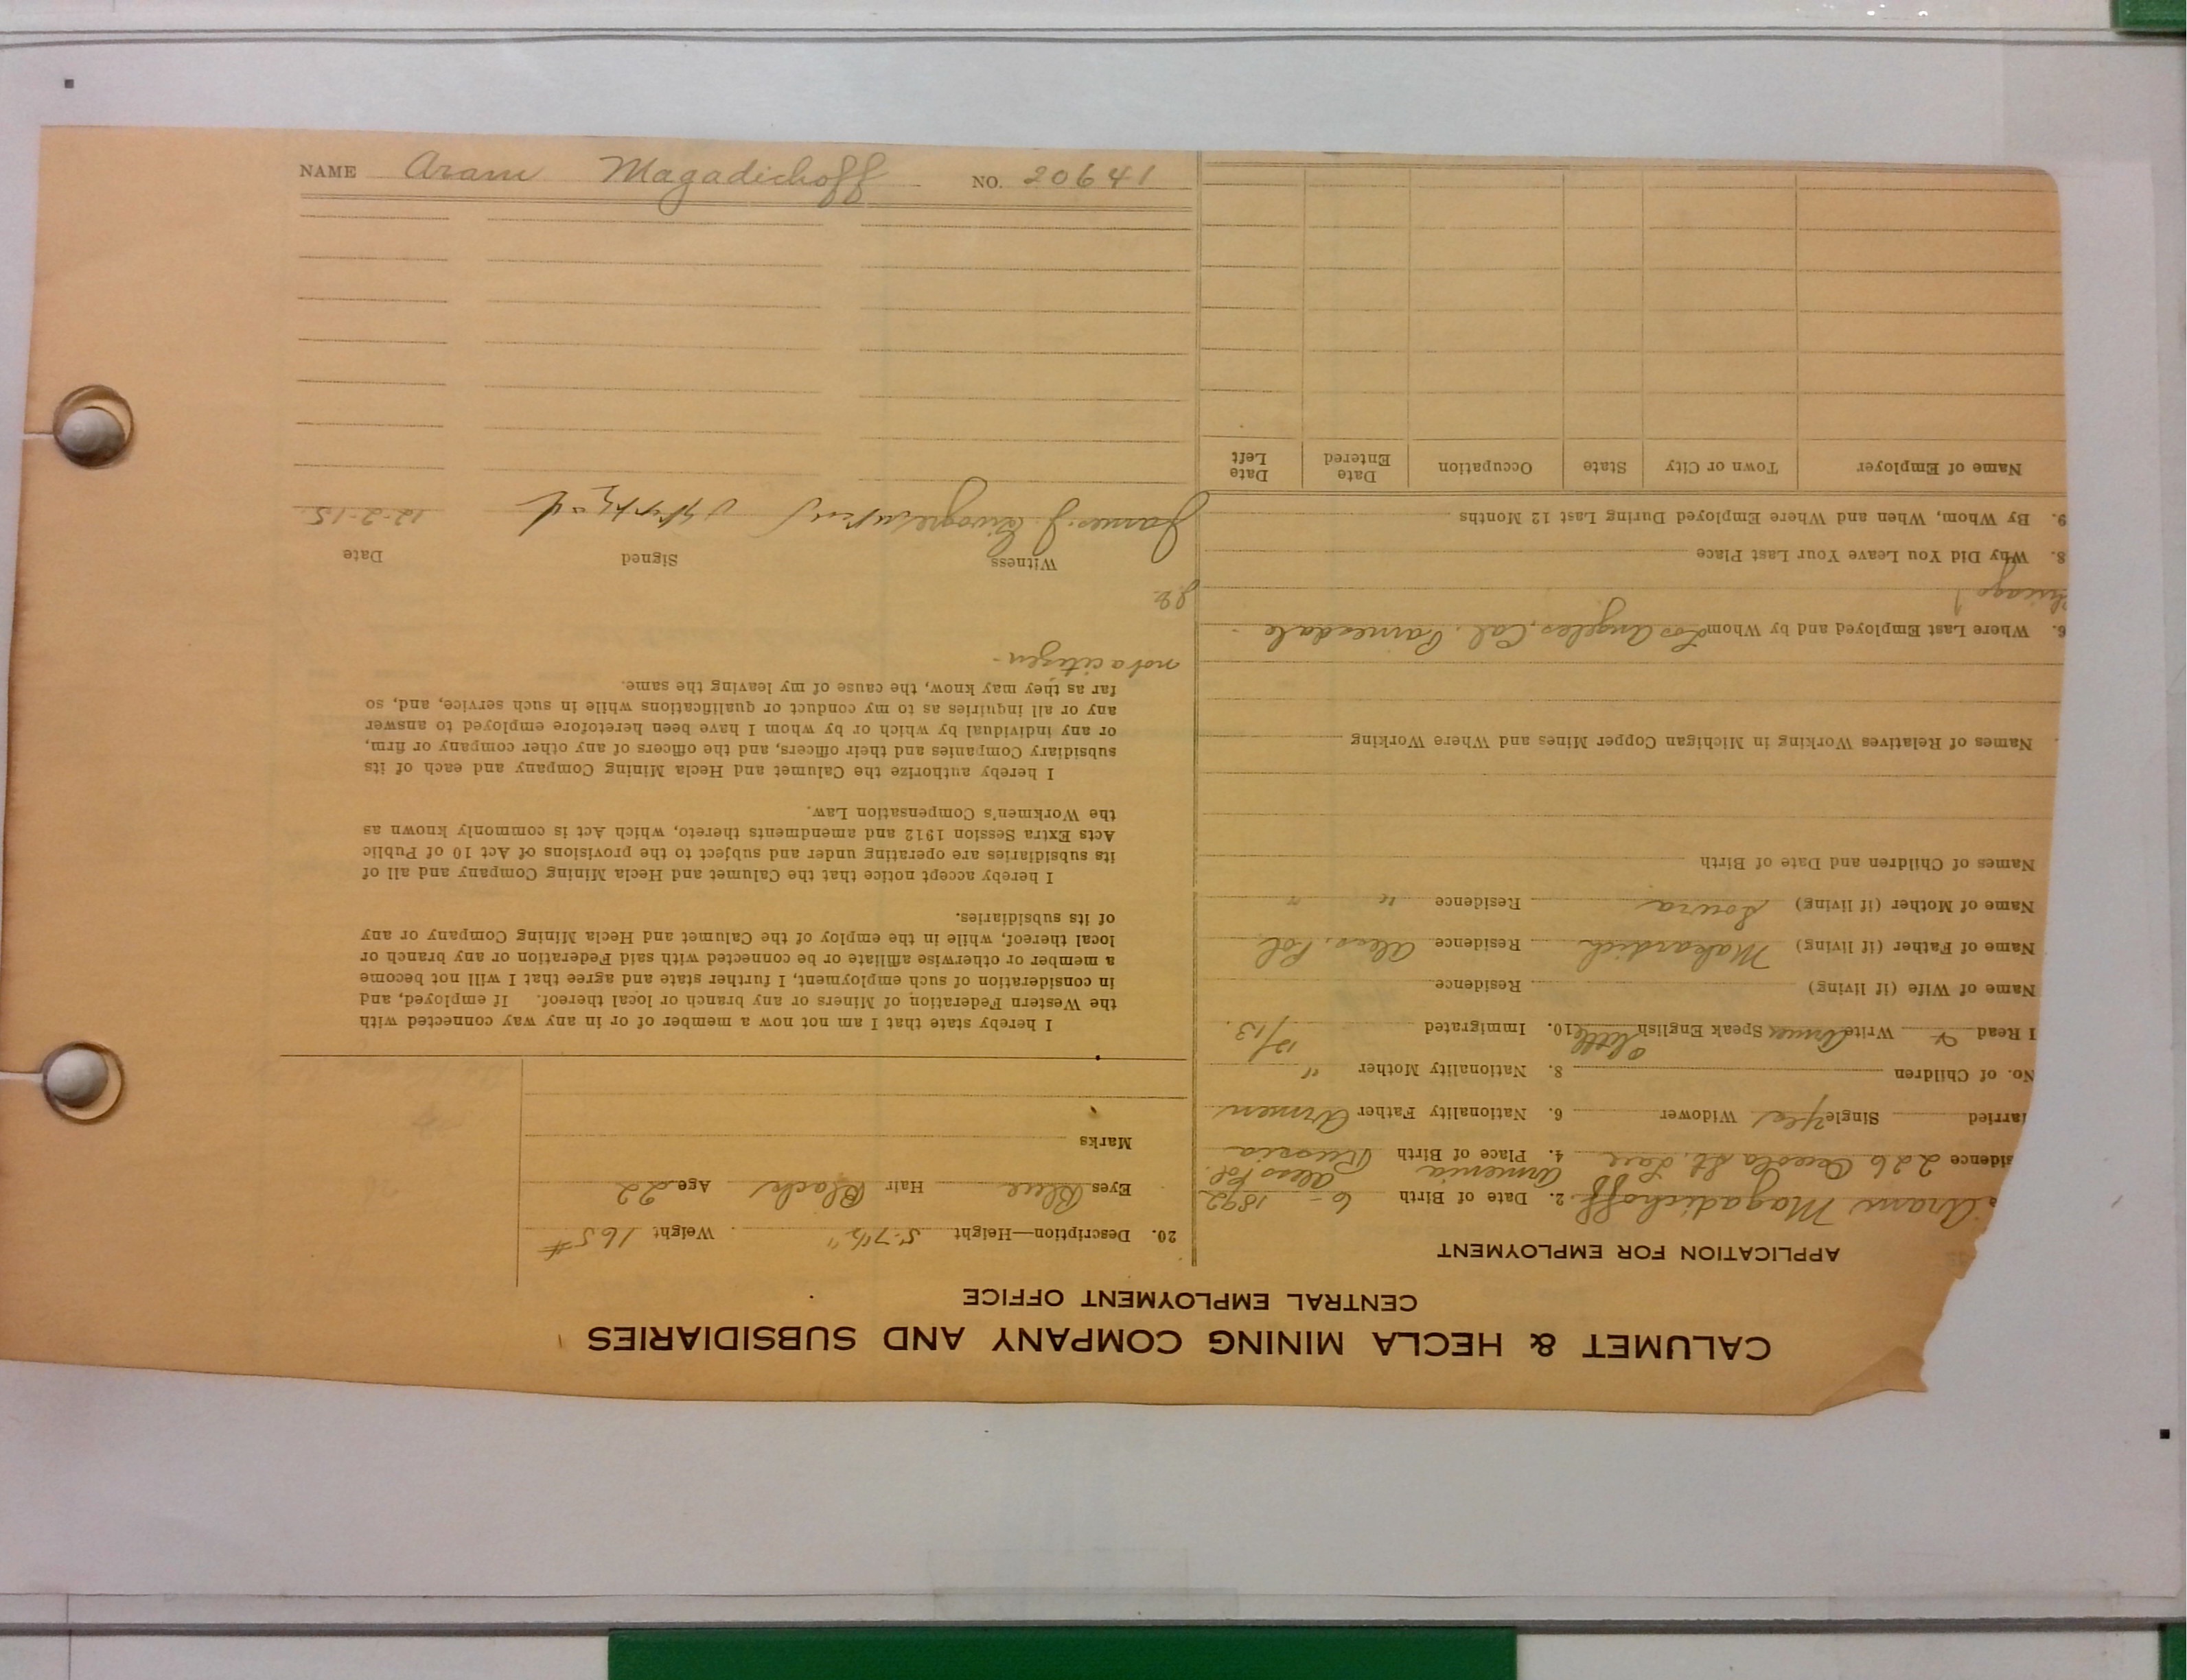 CALUMET & HECLA MINING COMPANY AND SUBSIDIARIES
CENTRAL EMPLOYMENT OFFICE
APPLICATION FOR EMPLOYMENT
Aram Magadichoff 2. Date of Birth 6 - 1892
sidence 226 St. 4. Place of Birth Armenia Russia
arried Single yes Widower 6. Nationality Father Armen
No. of Children 8. Nationality Mother "
I Read Write Armen Speak English little 10. Immigrated 12/13.
Name of Wife (if living) Residence
Name of Father (if living) Makardich Residence
Name of Mother (if living) Residence " "
Names of Children and Date of Birth
Names of Relatives Working in Michigan Copper Mines and Where Working
6. Where Last Employed and by Whom Los Angeles, Cal.
hicago
8. Why Did You Leave Your Last Place
9. By Whom, When and Where Employed During Last 12 Months
Name of Employer Town or City State Occupation Date Entered Date Left
20. Description—Height 5-7½" Weight 165#
Eyes Blue Hair Black Age 22
Marks
I hereby state that I am not now a member of or in any way connected with
the Western Federation of Miners or any branch or local thereof. If employed, and
in consideration of such employment, I further state and agree that I will not become
a member or otherwise affiliate or be connected with said Federation or any branch or
local thereof, while in the employ of the Calumet and Hecla Mining Company or any
of its subsidiaries.
I hereby accept notice that the Calumet and Hecla Mining Company and all of
its subsidiaries are operating under and subject to the provisions of Act 10 of Public
Acts Extra Session 1912 and amendments thereto, which Act is commonly known as
the Workmen's Compensation Law.
I hereby authorize the Calumet and Hecla Mining Company and each of its
subsidiary Companies and their officers, and the officers of any other company or firm,
or any individual by which or by whom I have been heretofore employed to answer
any or all inquiries as to my conduct or qualifications while in such service, and, so
far as they may know, the cause of my leaving the same.
not a citizen -
Witness Signed Date
James J. 12-2-15.
NAME Aram Magadichoff NO. 20641